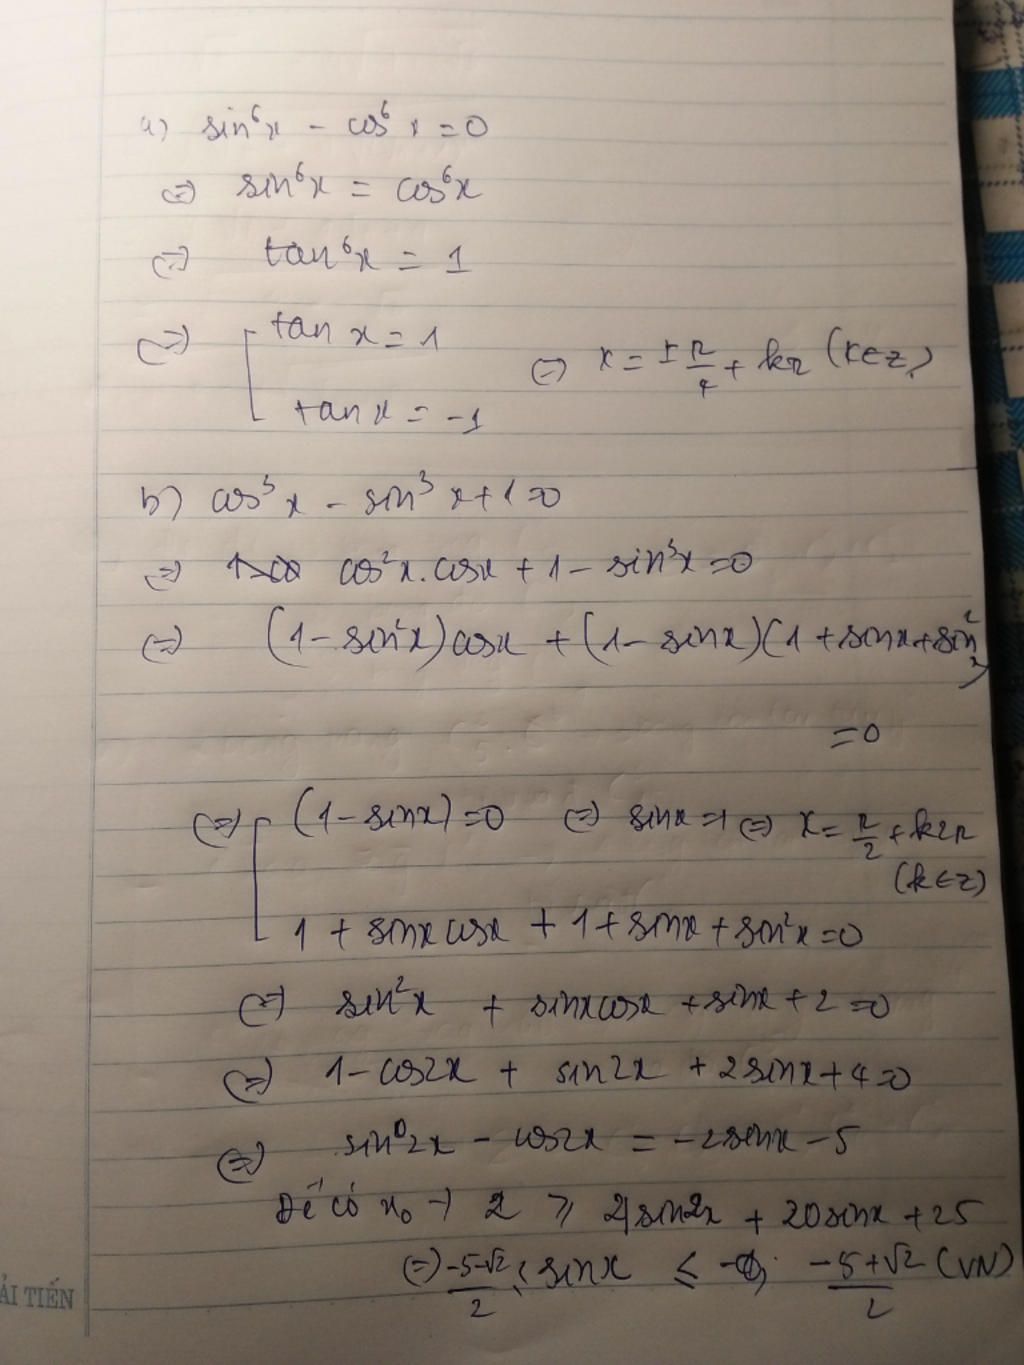 a) sin⁶x - cos⁶x = 0
⇔ sin⁶x = cos⁶x
⇔ tan⁶x = 1
⇔ [ tan x = 1
tan x = -1
⇔ x = ±π/4 + kπ (k∈Z)
b) cos³x - sin³x + 1 = 0
⇔ cos²x.cosx + 1 - sin³x = 0
⇔ (1 - sin²x)cosx + (1 - sinx)(1 + sinx + sin²x)
= 0
⇔ [ (1 - sinx) = 0 ⇔ sinx = 1 ⇔ x = π/2 + k2π
(k∈Z)
1 + sinx cosx + 1 + sinx + sin²x = 0
⇔ sin²x + sinxcosx + sinx + 2 = 0
⇔ 1 - cos2x + sin2x + 2sinx + 4 = 0
⇔ sin2x - cos2x = -2sinx - 5
Để có x₀ → 2 ≥ 4sin²x + 20sinx + 25
⇔ (-5-√2)/2 ≤ sinx ≤ (-5+√2)/2 (VN)
ẢI TIẾN